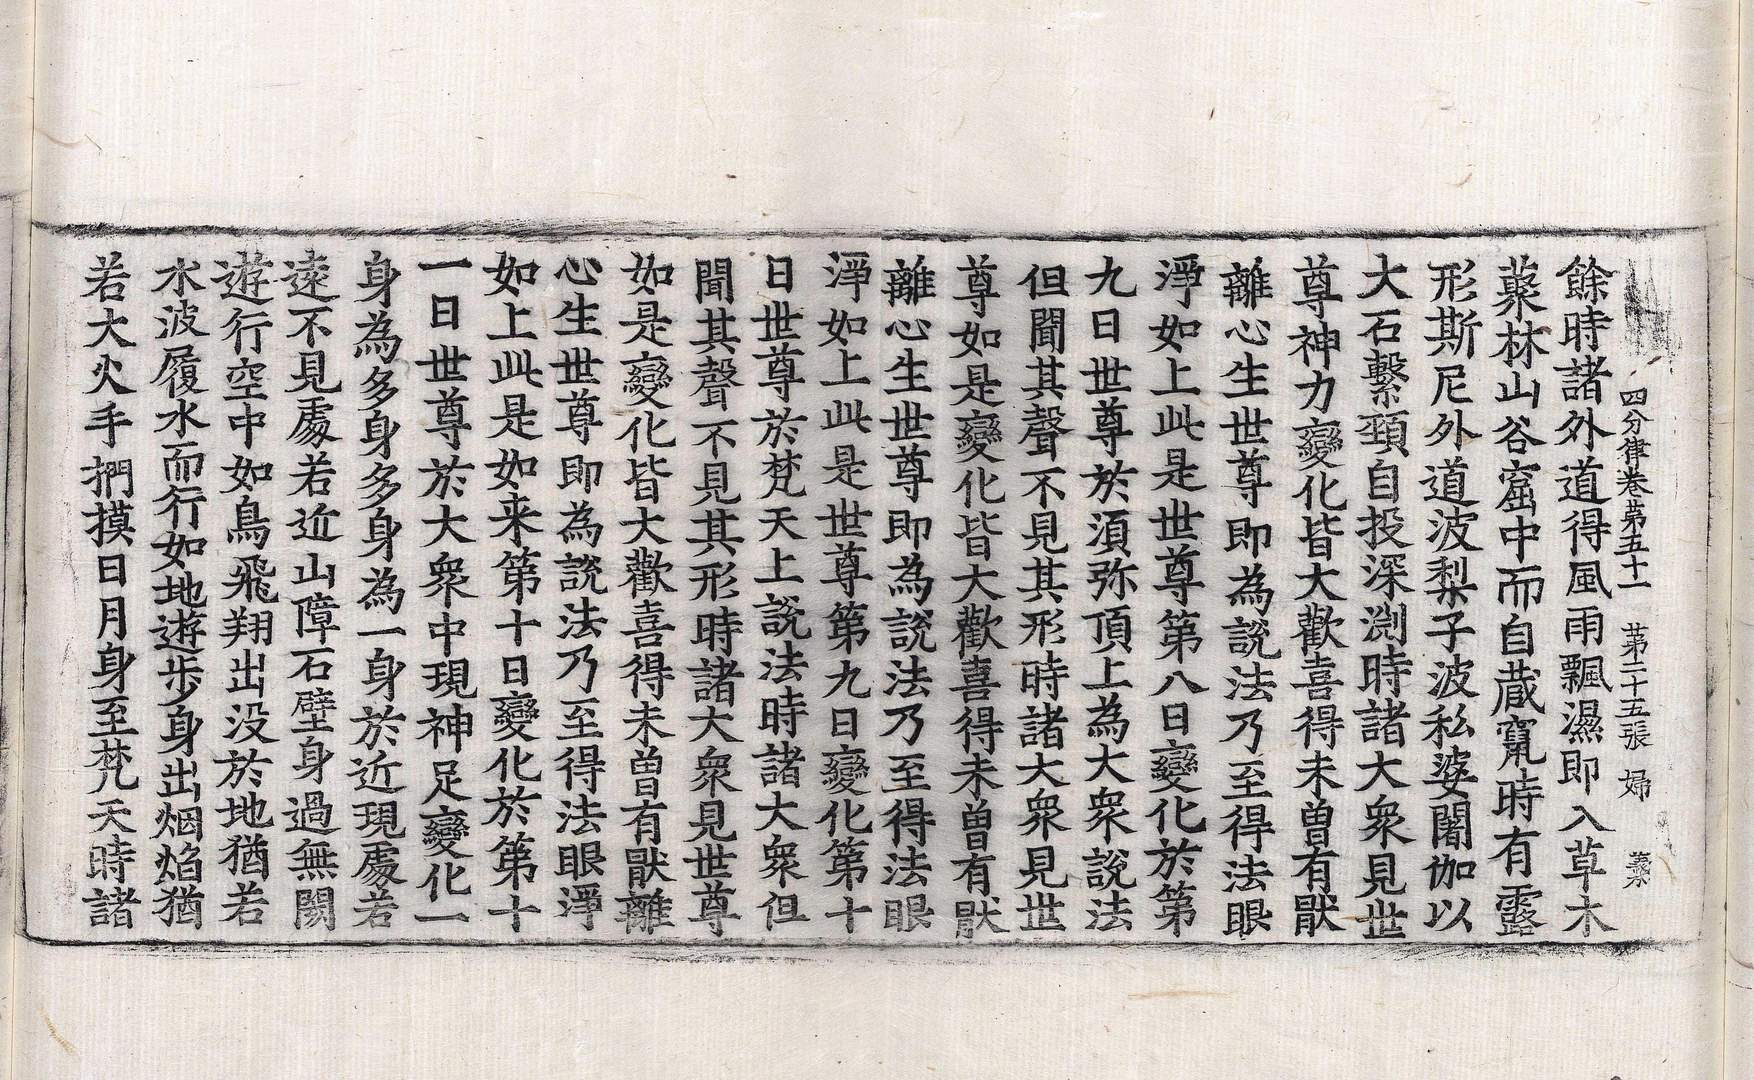 四分律卷第五十一 第二十五張 婦
餘時諸外道得風雨飄濕即入草木
藂林山谷窟中而自藏竄時有露
形斯尼外道波梨子波私婆闍伽以
大石繫頸自投深渕時諸大衆見世
尊神力變化皆大歡喜得未曽有猒
離心生世尊即為說法乃至得法眼
淨如上此是世尊第八日變化於第
九日世尊於須弥頂上為大衆說法
但聞其聲不見其形時諸大衆見世
尊如是變化皆大歡喜得未曽有猒
離心生世尊即為說法乃至得法眼
淨如上此是世尊第九日變化第十
日世尊於梵天上說法時諸大衆但
聞其聲不見其形時諸大衆見世尊
如是變化皆大歡喜得未曽有猒離
心生世尊即為說法乃至得法眼淨
如上此是如来第十日變化於第十
一日世尊於大衆中現神足變化一
身為多身多身為一身於近現處若
遠不見處若近山障石壁身過無閡
遊行空中如鳥飛翔出没於地猶若
水波履水而行如地遊步身出烟焰猶
若大火手捫摸日月身至梵天時諸